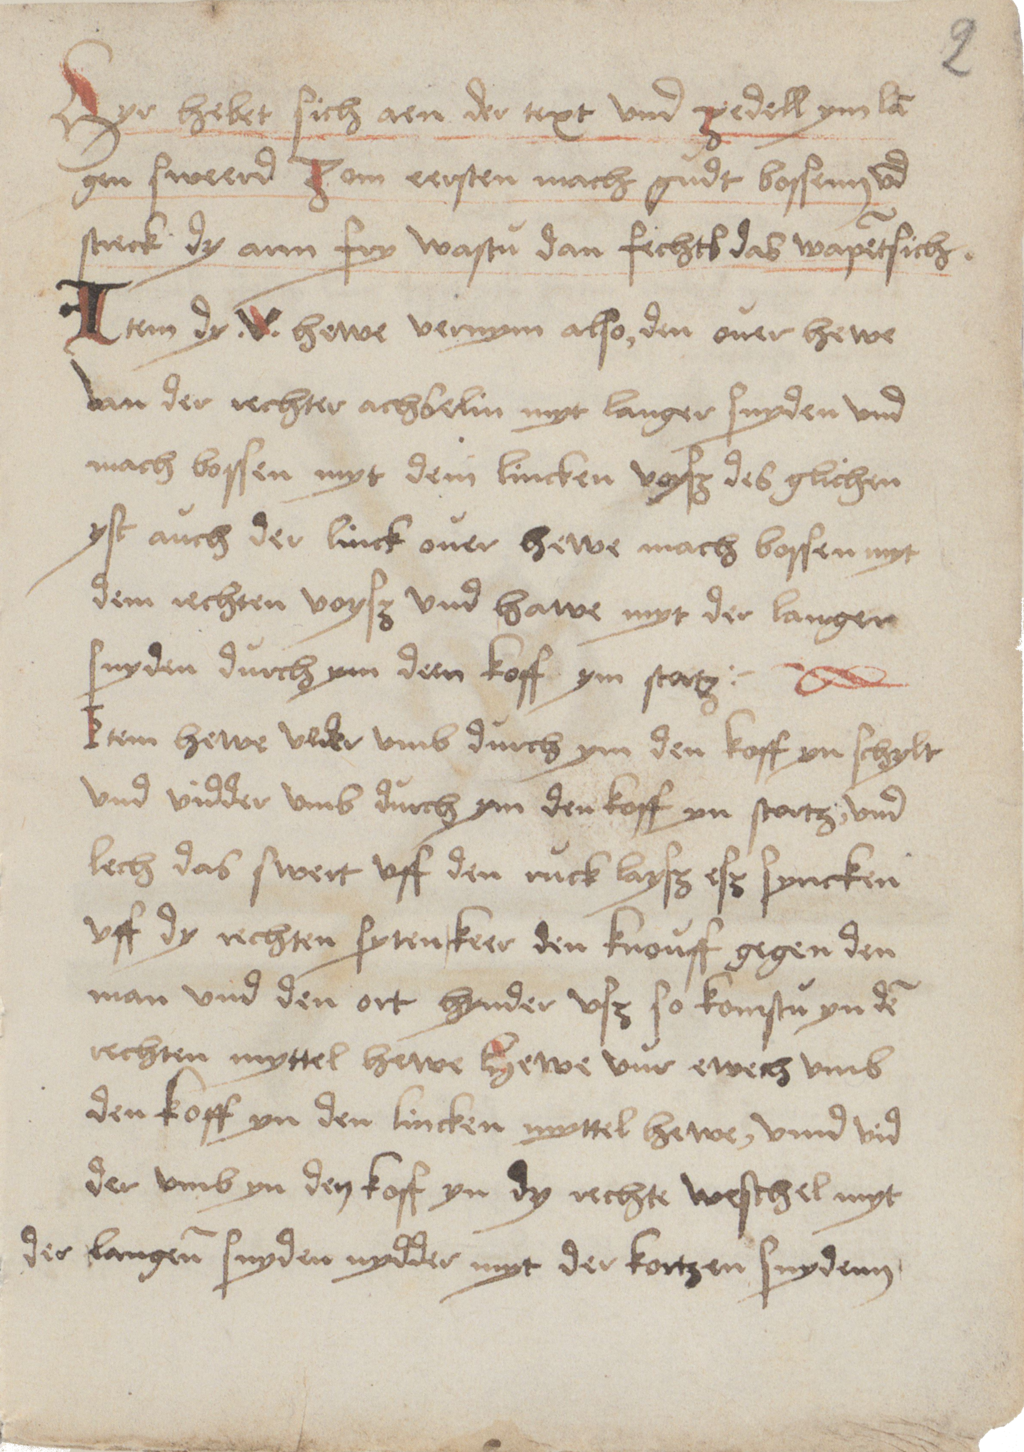 2
Hyr hebet sich aen der text und zedell ym lā
gen sweerd Zom eersten mach gudt bossenn vd
streck dy arm fry wastu dan fechts das wapēt sich.
Item dy .v. hewe vernym also, den ouer hewe
van der rechter achselin myt langer snyden und
mach bossen myt dem lincken voysz des glichen
yst auch der linck ouer hewe mach bossen myt
dem rechten voysz und hawe myt der langer
snyden durch ym den koff ym stortz :
Item hewe vlder vmb durch ym den koff yn schylt
vnd vidder vmb durch ym den koff yn stortz, vnd
lech das swert vff den ruck laysz esz syncken
vff dy rechten syten keer den knouff gegen den
man vnd den ort hynder vsz so komstu yn dē
rechten myttel hewe hewe vur ewech vmb
den koff yn den lincken myttel hewe, vnnd vid
der vmb yn den koff yn dy rechte weschel myt
der langen̄ snyden nydder myt der kortzen snydenn